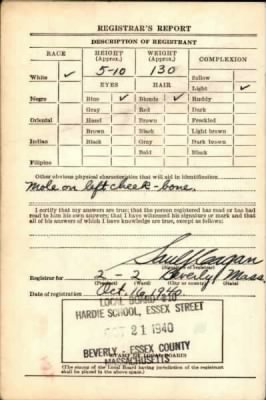 REGISTRAR'S REPORT
DESCRIPTION OF REGISTRANT
RACE HEIGHT (Approx.) WEIGHT (Approx.) COMPLEXION
White ✓ 5-10 130 Sallow
EYES HAIR Light ✓
Negro Blue ✓ Blonde ✓ Ruddy
Gray Red Dark
Oriental Hazel Brown Freckled
Brown Black Light brown
Indian Black Gray Dark brown
Bald Black
Filipino
Other obvious physical characteristics that will aid in identification
Mole on left cheek-bone.
I certify that my answers are true; that the person registered has read or has had
read to him his own answers; that I have witnessed his signature or mark and that
all of his answers of which I have knowledge are true, except as follows:
(Signature of registrar)
Registrar for 2 - 2 Beverly Mass.
(Precinct) (Ward) (City or county) (State)
Date of registration Oct. 16, 1940
LOCAL BOARD
HARDIE SCHOOL, ESSEX STREET
OCT 21 1940
BEVERLY - ESSEX COUNTY
MASSACHUSETTS
(The stamp of the Local Board having jurisdiction of the registrant
shall be placed in the above space.)